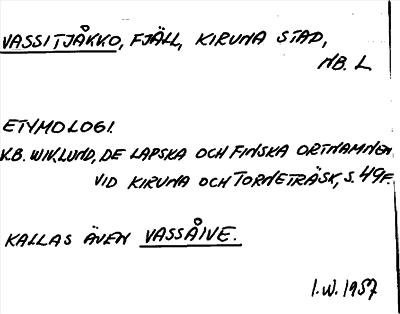 VASSITJÅKKO, FJÄLL, KIRUNA STAD,
NB. L
ETYMOLOGI.
K.B. WIKLUND, DE LAPSKA OCH FINSKA ORTNAMNEN
VID KIRUNA OCH TORNETRÄSK, S. 49F.
KALLAS ÄVEN VASSÅIVE.
I.W. 1957